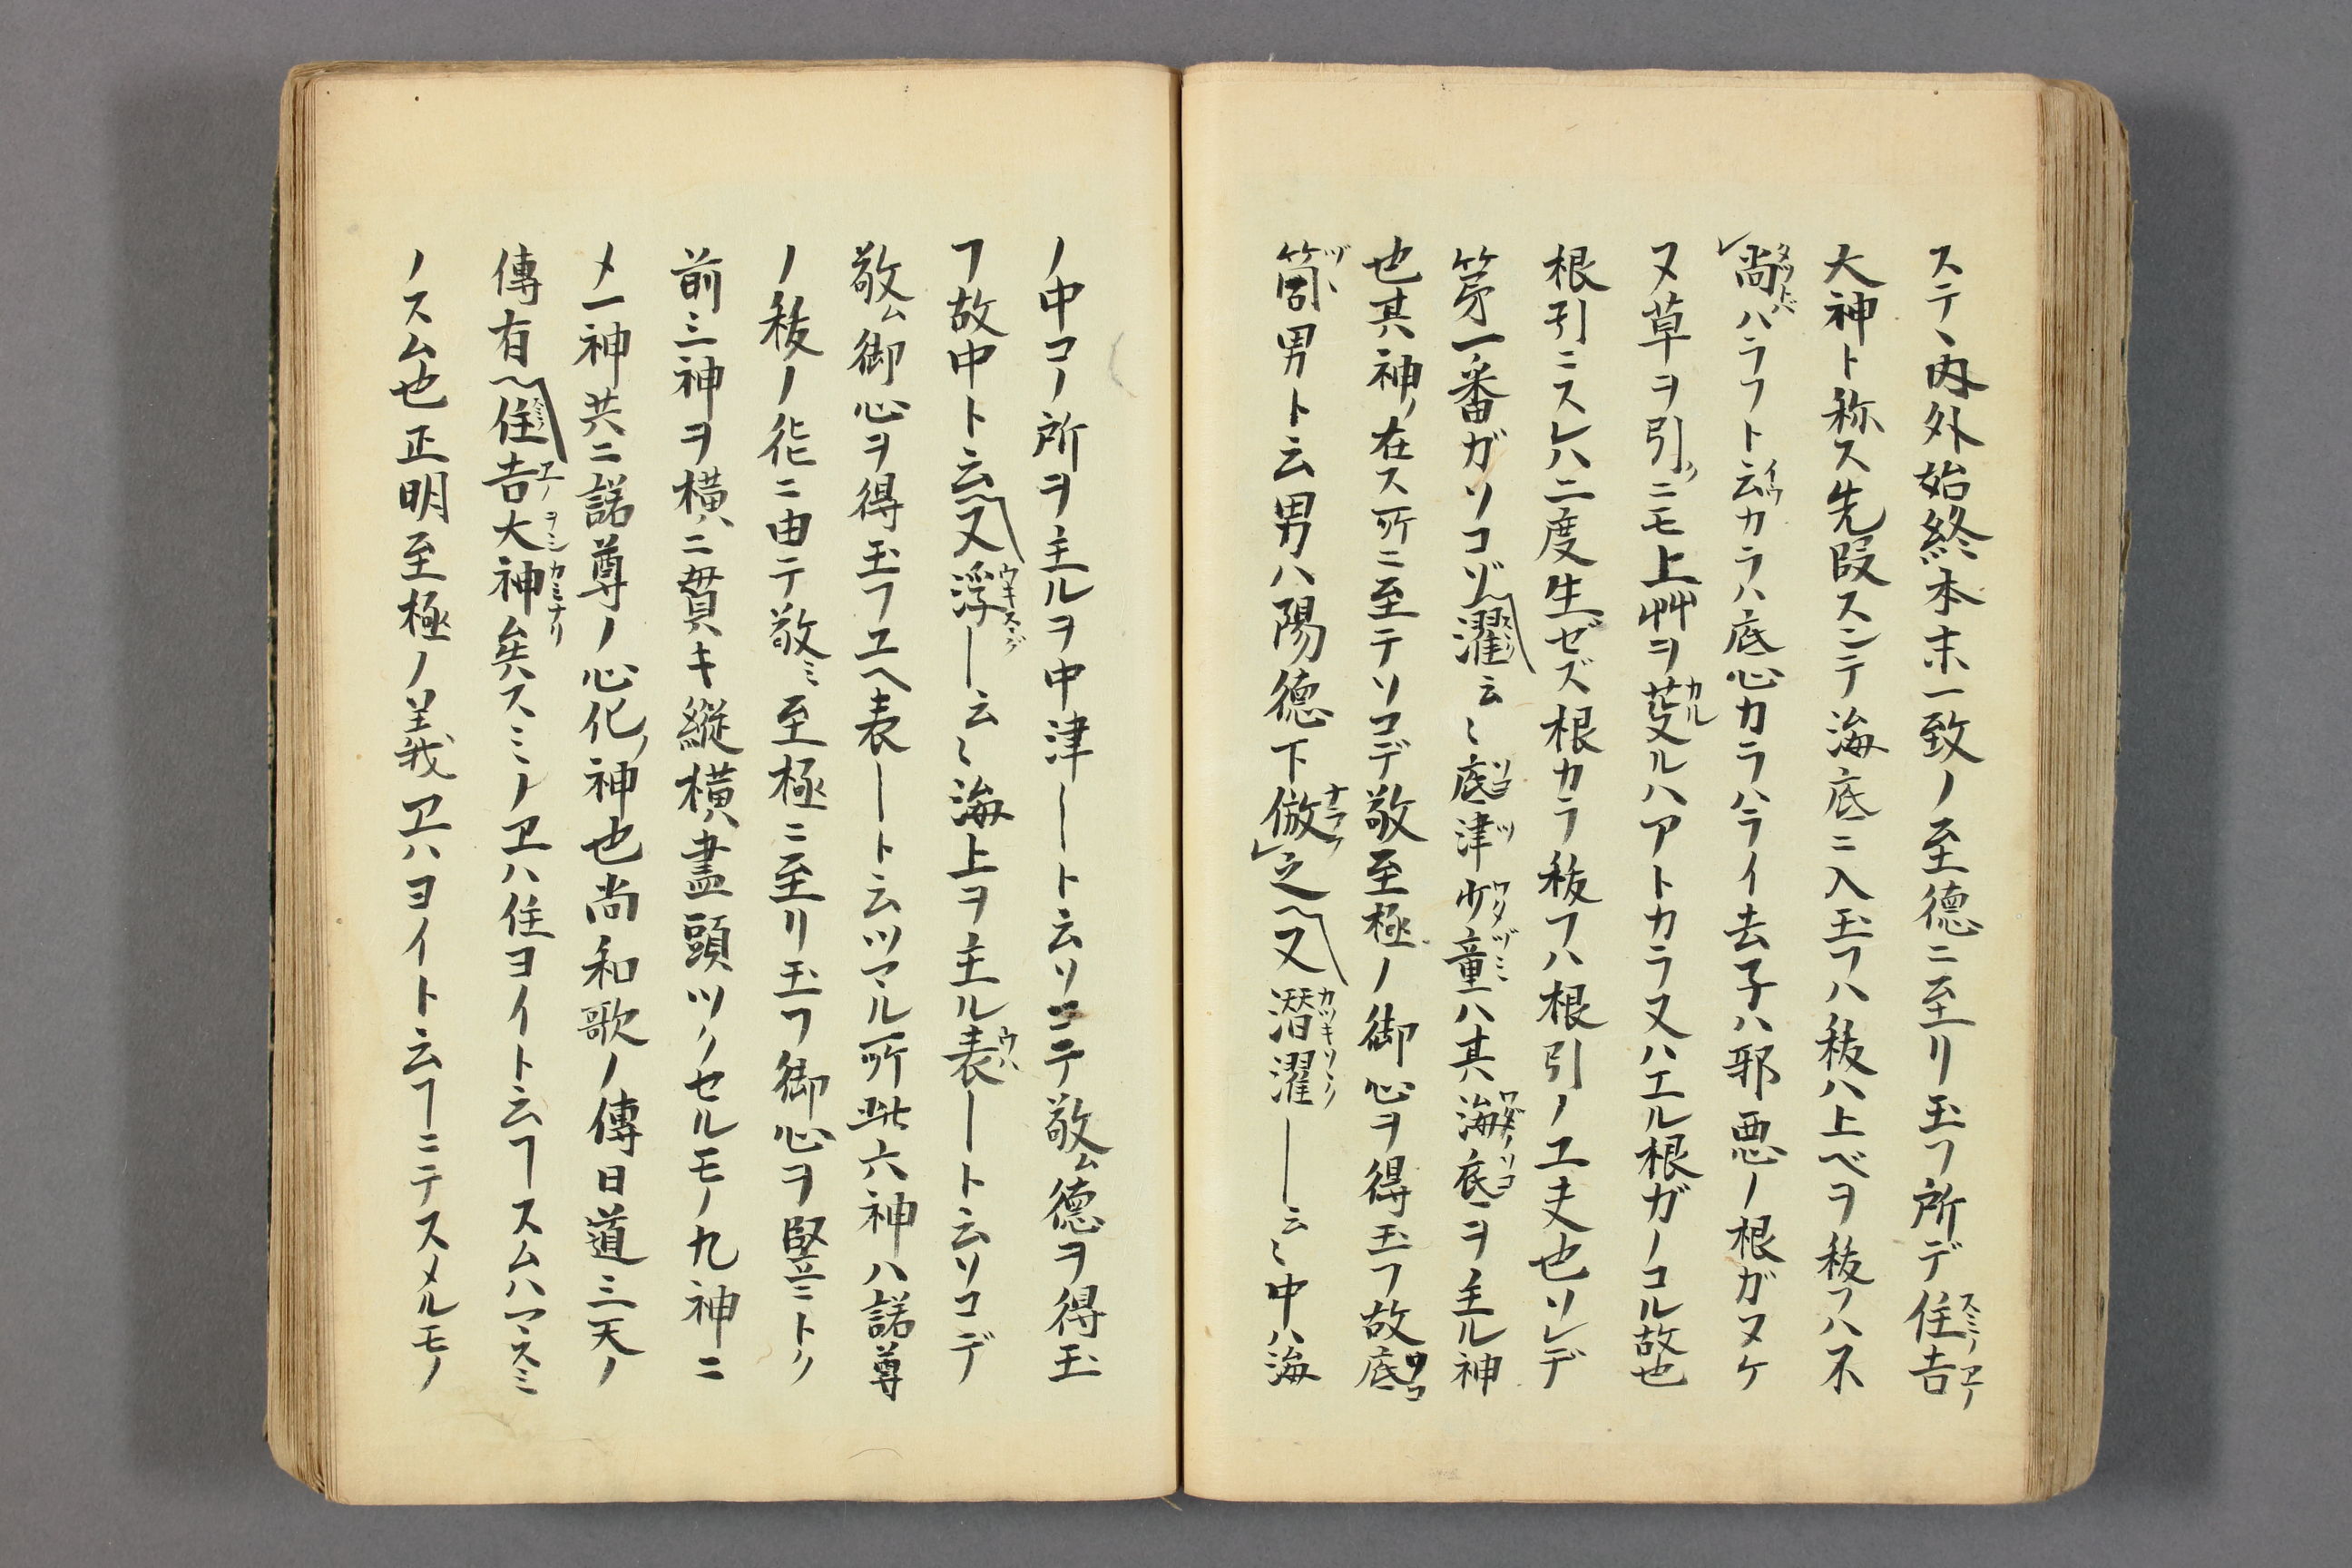 ステ、内外始終本末一致ノ至德ニ至リ玉フ所デ住吉
大神ト称ス先段スンテ海底ニ入玉フハ祓ハ上ベヲ祓フハ不
尚ハラフト云カラハ底心カラハライ去子ハ邪悪ノ根ガヌケ
ヌ草ヲ引ニモ上艸ヲ芟ルハアトカラ又ハエル根ガノコル故也
根引ニスレハ二度生ゼズ根カラ祓フハ根引ノ工夫也ソレデ
第一番ガソコゾ濯云〻底津少童ハ其海底ヲ主ル神
也其神ノ在ス所ニ至テソコデ敬至極ノ御心ヲ得玉フ故底
筒男ト云男ハ陽德下倣之又潜濯―云〻中ハ海
ノ中コノ所ヲ主ルヲ中津―ト云ソコテ敬ム德ヲ得玉
フ故中ト云又浮―云〻海上ヲ主ル表―ト云ソコデ
敬ム御心ヲ得玉フユヘ表―ト云ツマル所此六神ハ諾尊
ノ祓ノ化ニ由テ敬ミ至極ニ至リ玉フ御心ヲ竪ニトク
前三神ヲ横ニ貫キ縦横盡頭ツクセルモノ九神ニ
メ一神共ニ諾尊ノ心化ノ神也尚和歌ノ傳日道三天ノ
傳有住吉大神矣スミノヱハ住ヨイト云フースムハマスミ
ノスム也正明至極ノ義ヱハヨイト云フーニテスメルモノ